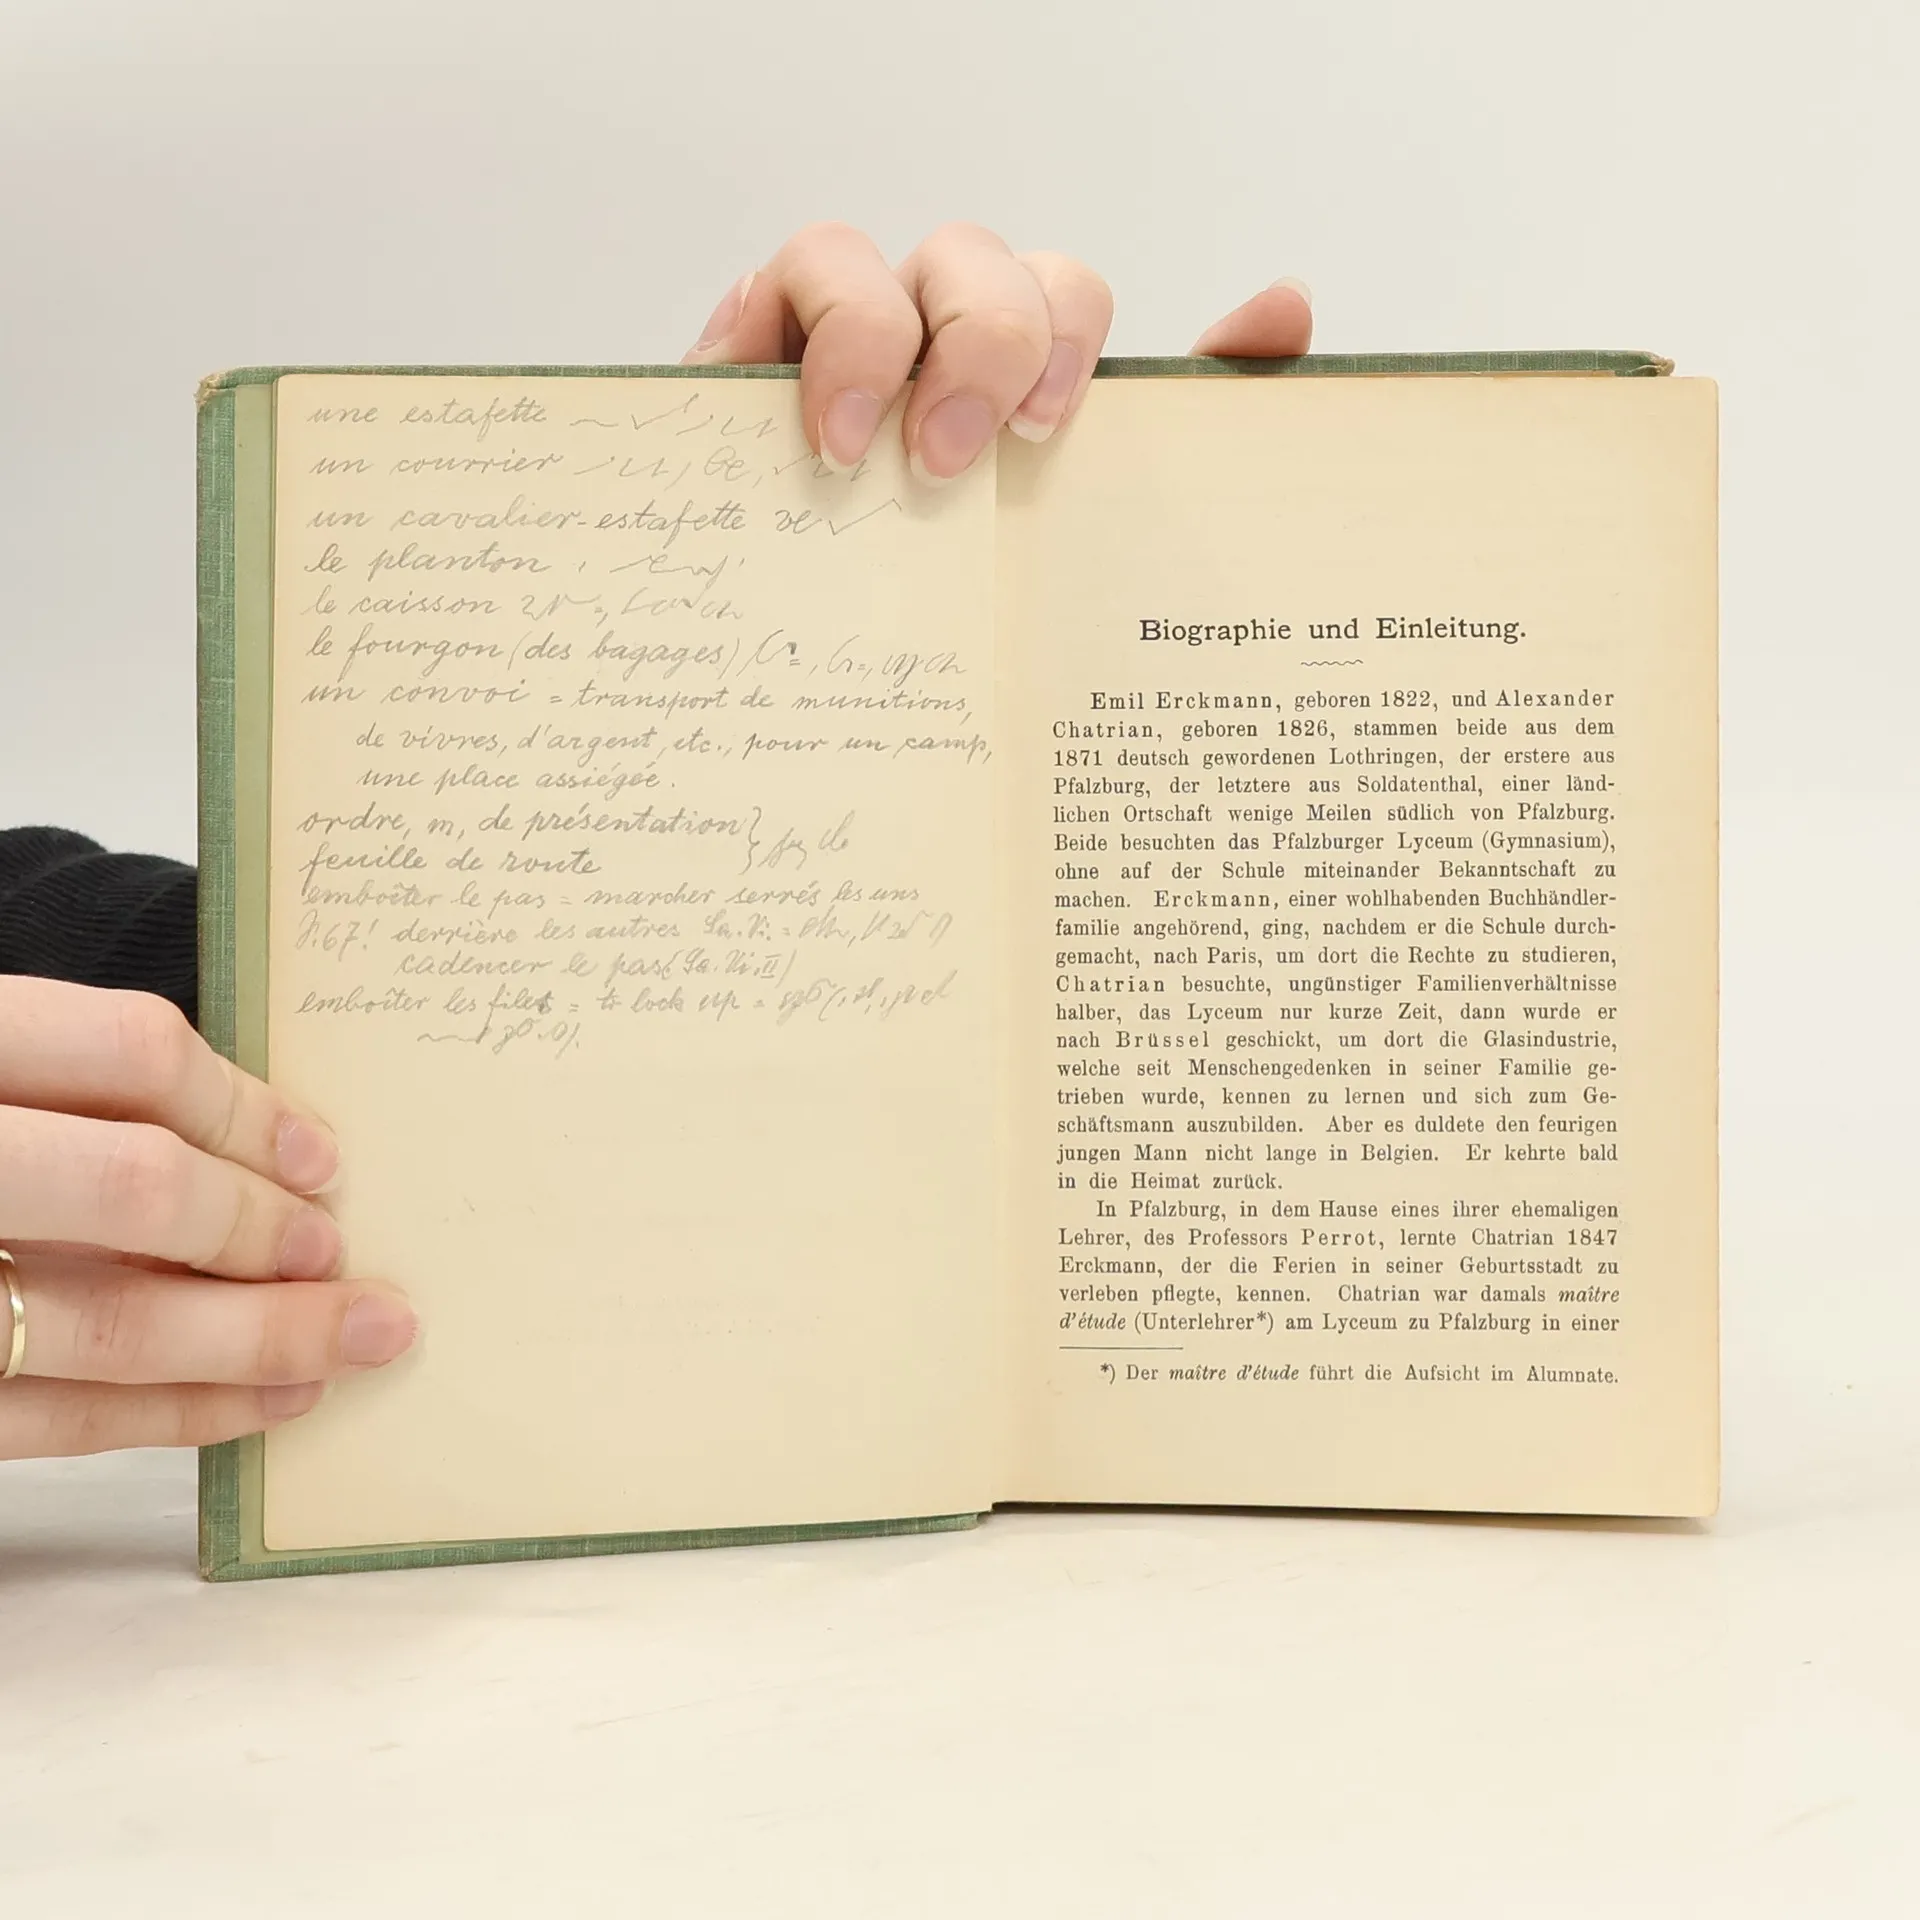 une estafette
un courrier
un cavalier-estafette
le planton
le caisson
le fourgon (des bagages)
un convoi = transport de munitions,
de vivres, d'argent, etc., pour un camp,
une place assiégée.
ordre, m, de présentation }
feuille de route
emboîter le pas = marcher serrés les uns
S. 67! derrière les autres Sa. Vi. =
cadencer le pas (Sa. Vi. II)
emboîter les files = to lock up =
Biographie und Einleitung.
Emil Erckmann, geboren 1822, und Alexander
Chatrian, geboren 1826, stammen beide aus dem
1871 deutsch gewordenen Lothringen, der erstere aus
Pfalzburg, der letztere aus Soldatenthal, einer länd-
lichen Ortschaft wenige Meilen südlich von Pfalzburg.
Beide besuchten das Pfalzburger Lyceum (Gymnasium),
ohne auf der Schule miteinander Bekanntschaft zu
machen. Erckmann, einer wohlhabenden Buchhändler-
familie angehörend, ging, nachdem er die Schule durch-
gemacht, nach Paris, um dort die Rechte zu studieren,
Chatrian besuchte, ungünstiger Familienverhältnisse
halber, das Lyceum nur kurze Zeit, dann wurde er
nach Brüssel geschickt, um dort die Glasindustrie,
welche seit Menschengedenken in seiner Familie ge-
trieben wurde, kennen zu lernen und sich zum Ge-
schäftsmann auszubilden. Aber es duldete den feurigen
jungen Mann nicht lange in Belgien. Er kehrte bald
in die Heimat zurück.
In Pfalzburg, in dem Hause eines ihrer ehemaligen
Lehrer, des Professors Perrot, lernte Chatrian 1847
Erckmann, der die Ferien in seiner Geburtsstadt zu
verleben pflegte, kennen. Chatrian war damals maître
d'étude (Unterlehrer*) am Lyceum zu Pfalzburg in einer
*) Der maître d'étude führt die Aufsicht im Alumnate.